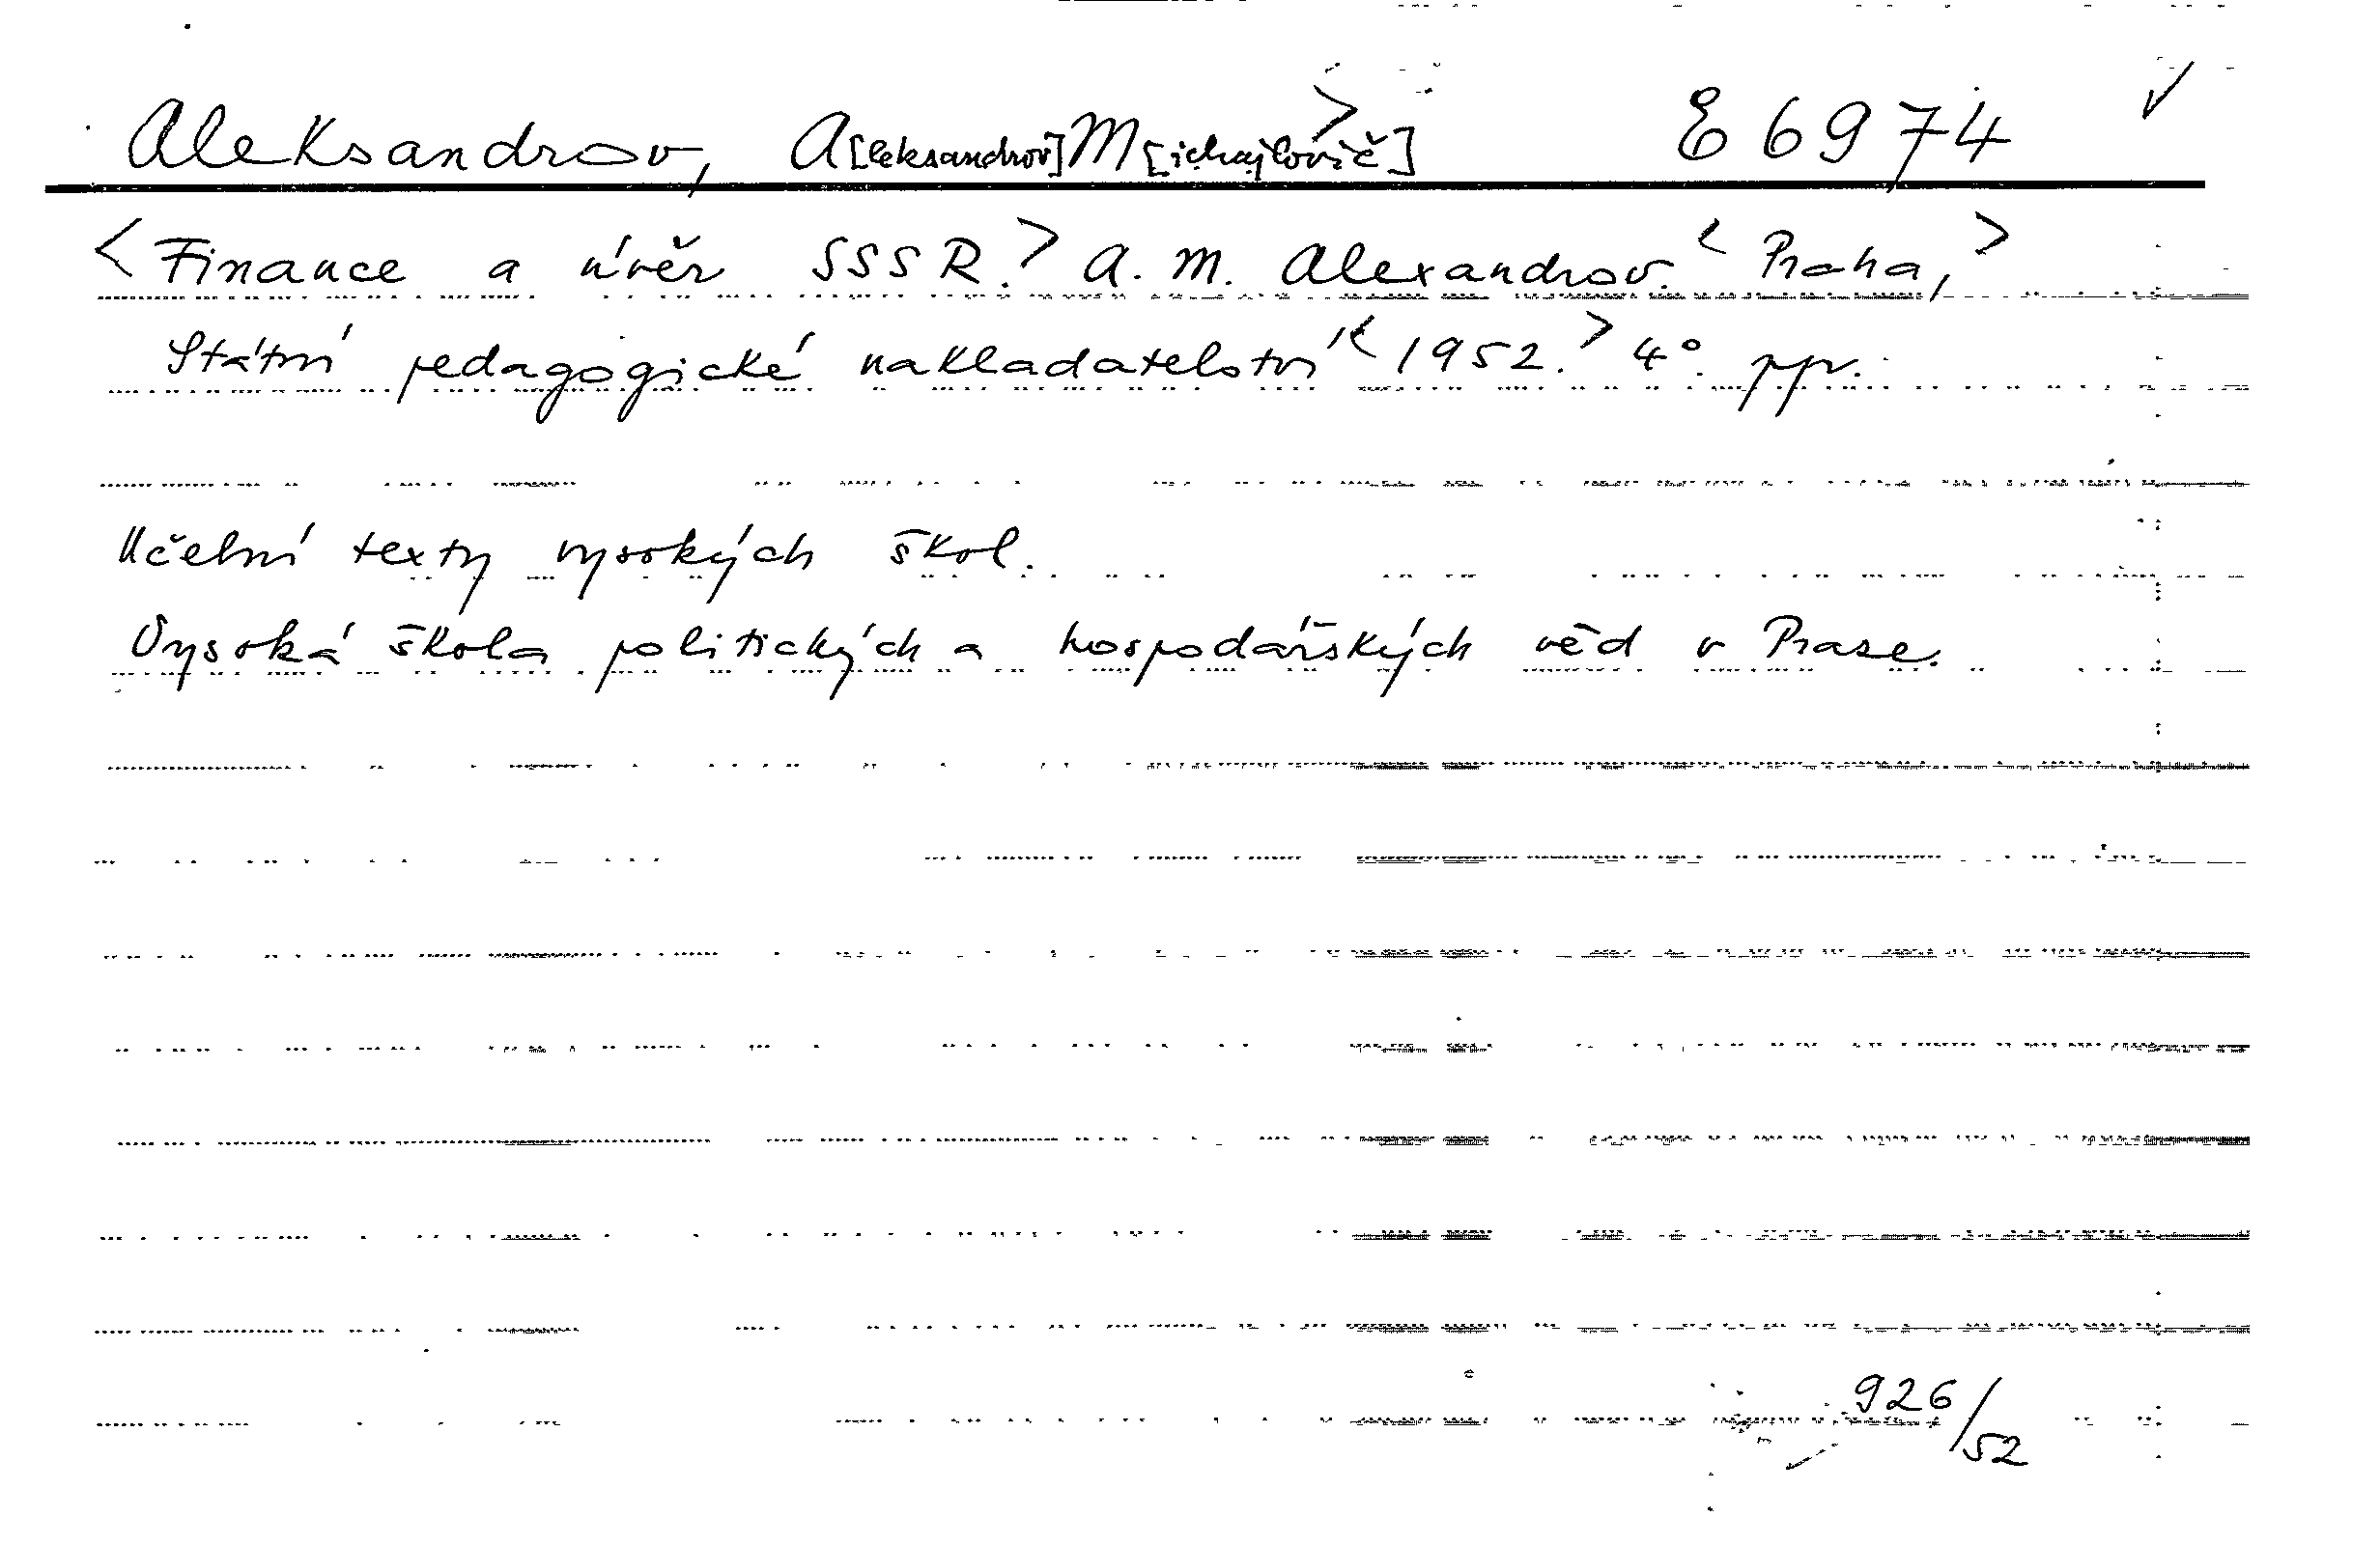 Aleksandrov, A[leksandrov] M[ichajlovič]> E 6974 ✓
<Finance a úvěr SSSR.> A. M. Alexandrov. <Praha,>
Státní pedagogické nakladatelství <1952.> 4°. ppv.
Učební texty vysokých škol.
Vysoká škola politických a hospodářských věd v Praze.
926/52